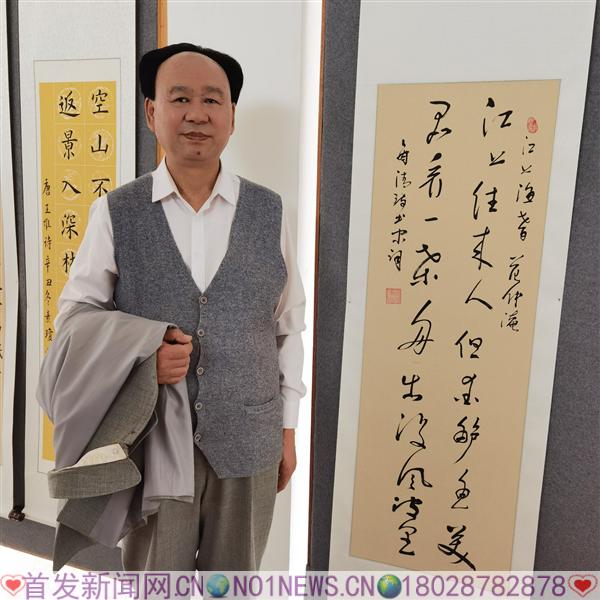 空山不
返景入深林
唐王维诗辛丑冬景
江上渔者 范仲淹
江上往来人但爱鲈鱼美
君看一叶舟出没风波里
❤首发新闻网.CN🌏NO1NEWS.CN🌏18028782878❤